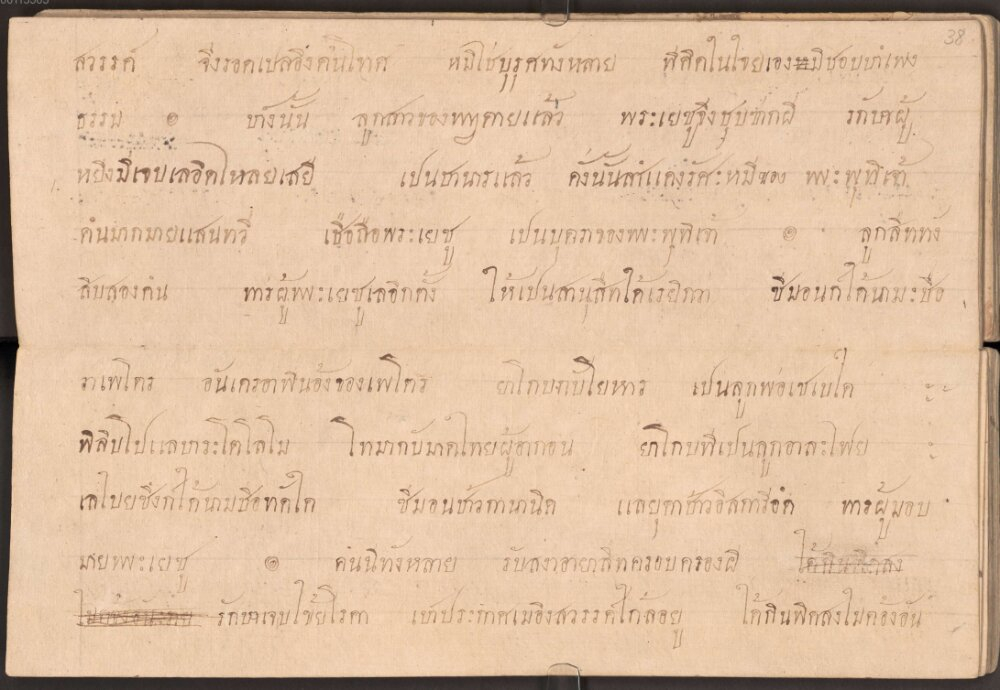 38
สวรรค์ จึงรอดเปลอึงคนโทศ หมีใช่บุรุศทังหลาย ที่คิดในใจยเอง มิชอบบำเพง
ธรรม ๏ บังนั้น ลูกสาวของพญาตายแล้ว พระเยซูจึงชุบซากผี รักษาผู้
หยิงมิเจบเลอิดไหลยเสยี เป็นชานารแล้ว ดั่งนั้นสำแดงรัศะหมีของ พระพุทิเจ้า
คนมากมายแสนทวี เชื่อถือพระเยซู เป็นบุตรของพระพุทิเจ้า ๏ ลูกสิททัง
สิบสองคน ทารผู้พระเยซูเลอิกตั้ง ให้เป็นสานุสิทได้เรยิกวา ซีมอนก็ได้นามะชือ
วาเพโตร อันเดรอาพินอ้งของเพโตร ยาโกบกับโยฮาร เป็นลูกพ่อเซเบได
พิลิบโปแลบาระโตโลโม โทมากับมาดไทยผู้อากอน ยาโกบที่เป็นลูกอาละโฟย
เลไบยซึ่งก็ได้นามชือทัดได ซีมอนชาวกานานิด แลยุดาชาวอิสการีอ่ด ทารผู้มอบ
มายพระเยซู ๏ คนนี้ทังหลาย รับสงอายาสิทครอบครองผี
รักษาเจบไข้ยโรคา เบาประกาศเมอิงสวรรค์ไก้ลอยู ได้กินพิดสงไม่ต้องอัน